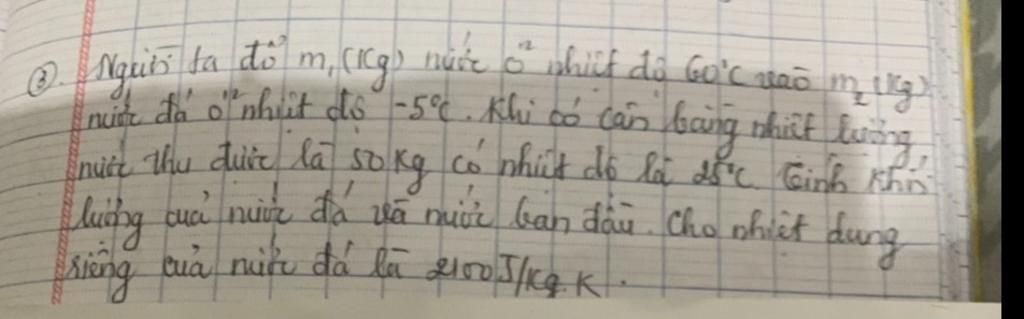 ③. Người ta đổ m₁ (Kg) nước ở nhiệt độ 60°C vào m₂ (Kg)
nước đá ở nhiệt độ -5°C. Khi có cân bằng nhiệt lượng
nước thu được là 50 Kg có nhiệt độ là 25°C. Tính khối
lượng của nước đá và nước ban đầu. Cho nhiệt dung
riêng của nước đá là 2100 J/Kg.K.